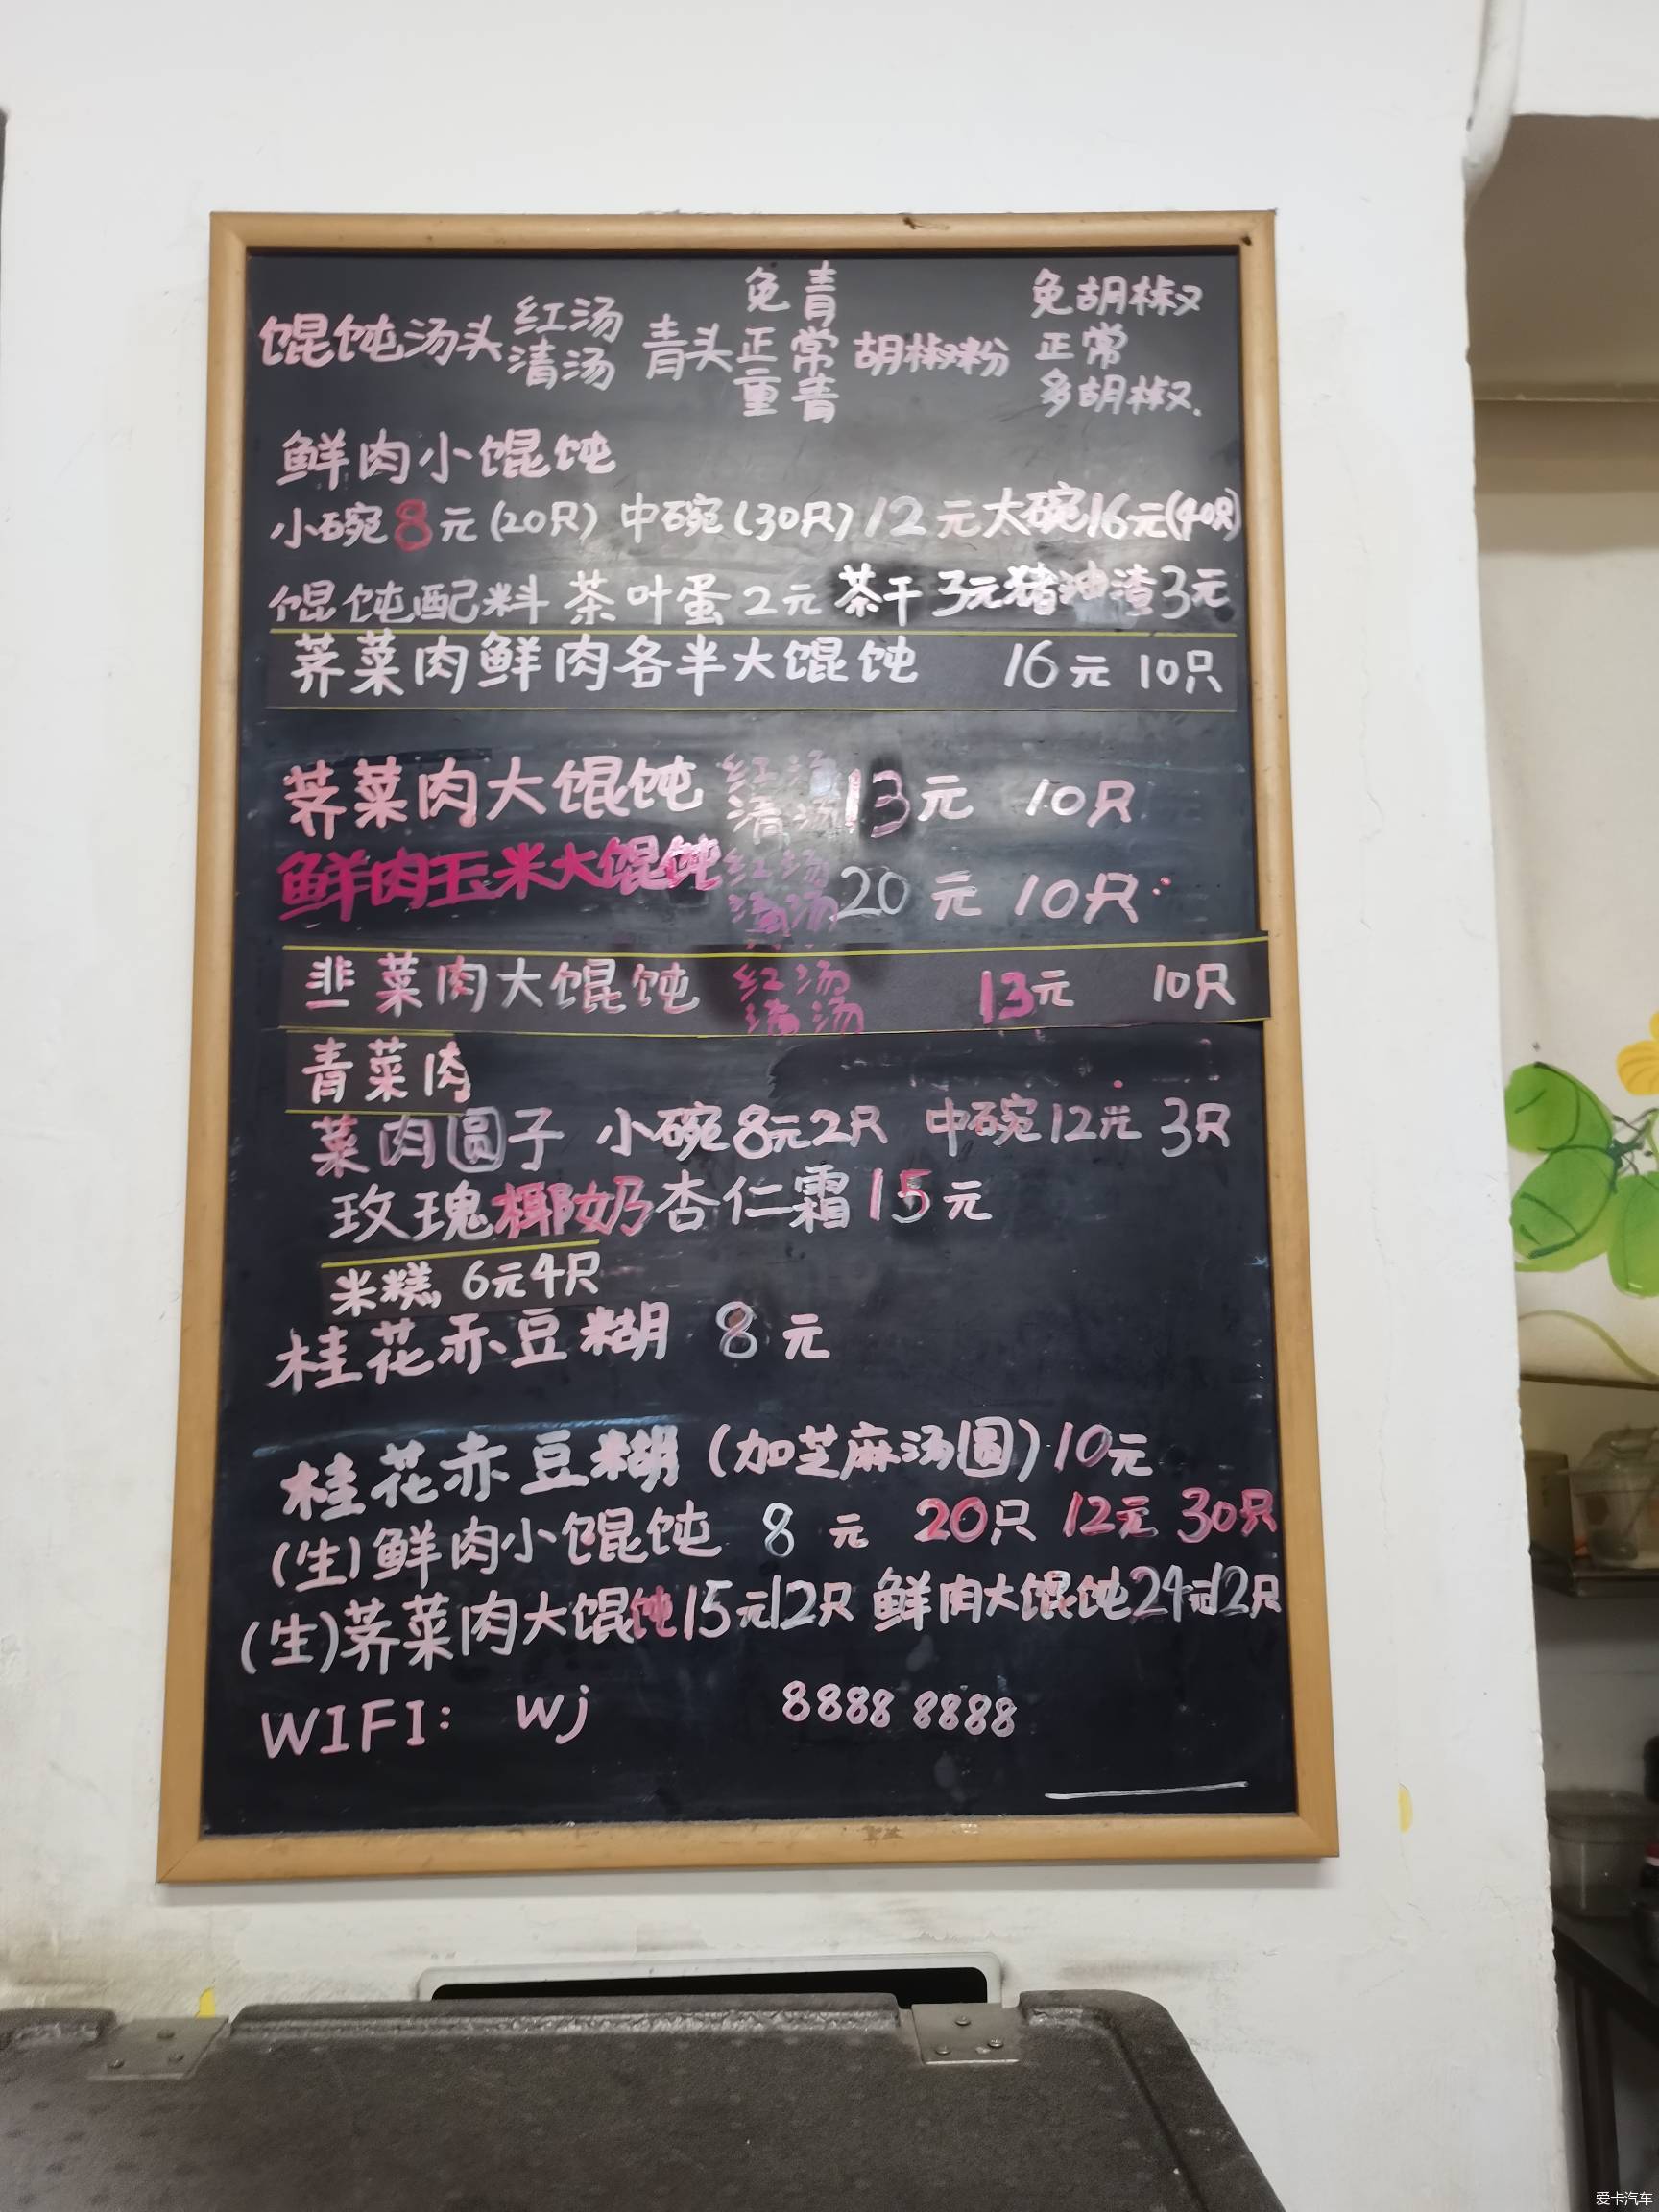 馄饨汤头 红汤 清汤 青头 免青 正常 重青 胡椒粉 免胡椒 正常 多胡椒.
鲜肉小馄饨
小碗8元(20只) 中碗(30只)12元大碗16元(40只)
馄饨配料 茶叶蛋2元 茶干3元猪油渣3元
荠菜肉鲜肉各半大馄饨 16元 10只
荠菜肉大馄饨 红汤 清汤 13元 10只
鲜肉玉米大馄饨 红汤 清汤 20元 10只
韭菜肉大馄饨 红汤 清汤 13元 10只
青菜肉
菜肉圆子 小碗8元2只 中碗12元 3只
玫瑰椰奶杏仁霜15元
米糕 6元4只
桂花赤豆糊 8元
桂花赤豆糊(加芝麻汤圆)10元
(生)鲜肉小馄饨 8元 20只 12元 30只
(生)荠菜肉大馄饨15元12只 鲜肉大馄饨24元12只
WIFI: wj 8888 8888
爱卡汽车